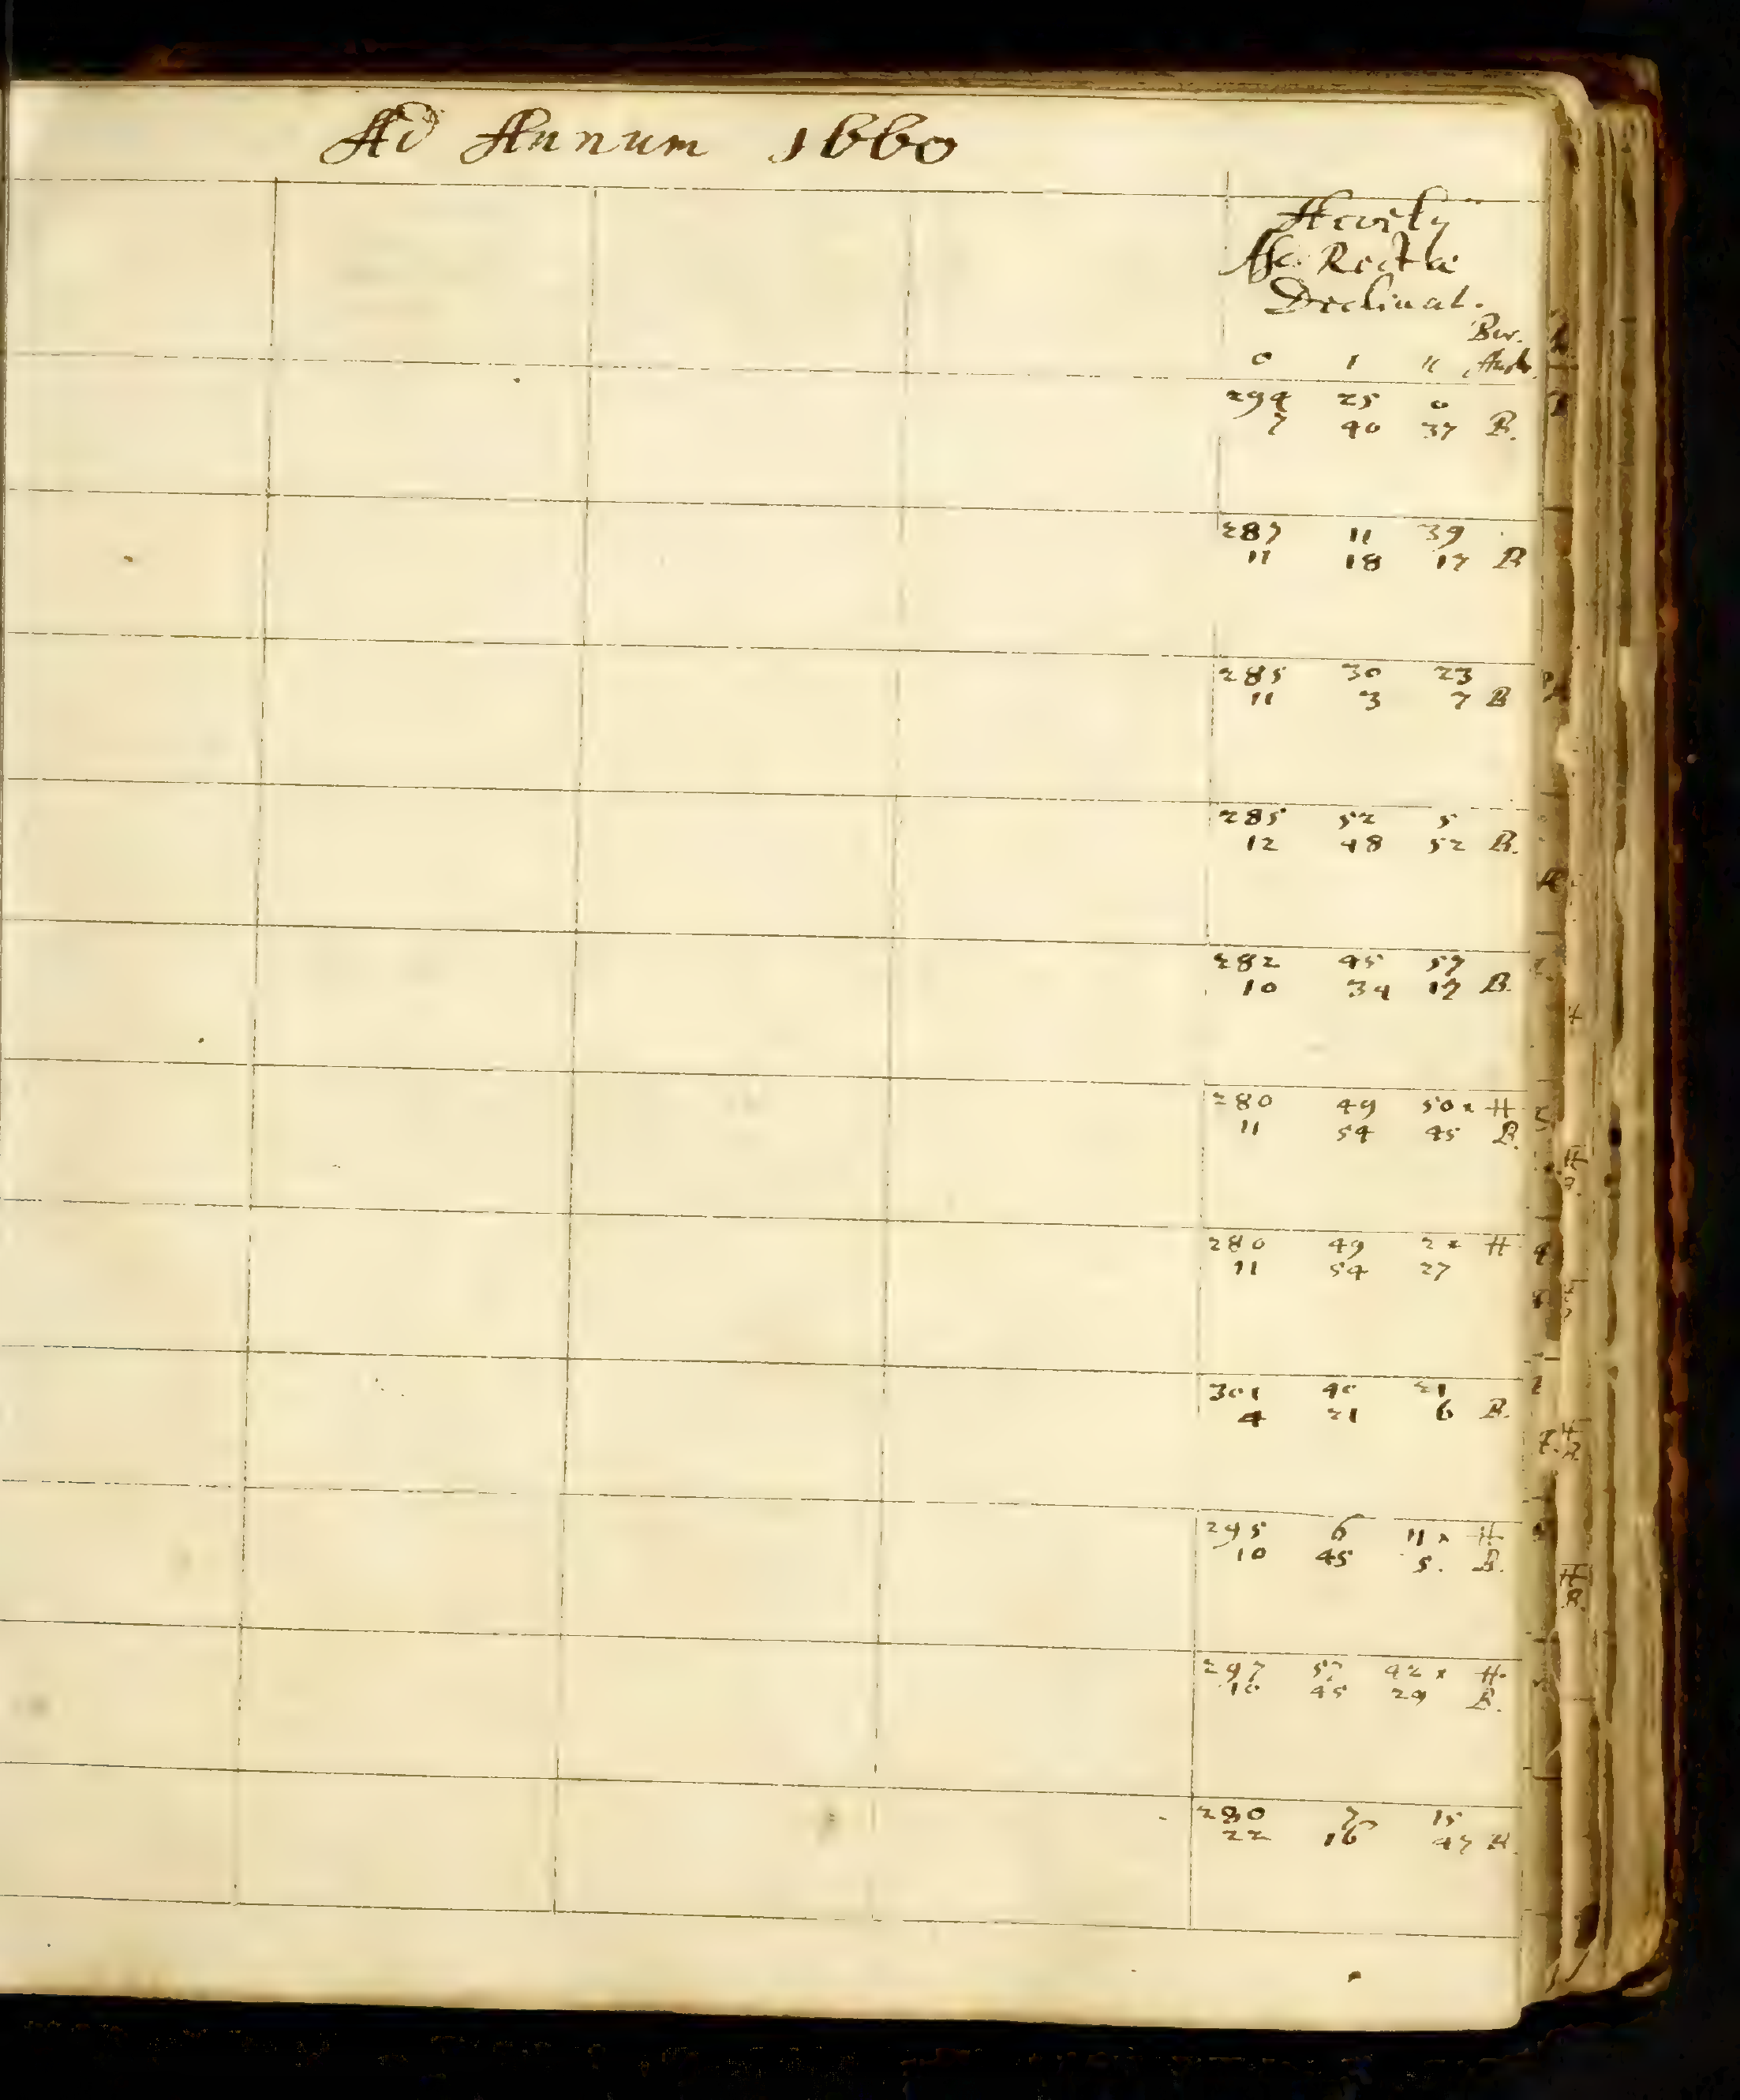 Ad Annum 1660
Hevelÿ
Asc. Rectæ
Declinat.
Bor.
0 1 11 Austr.
294 25 0
7 40 37 B.
287 11 39
11 18 17 B
285 30 23
11 3 7 B
285 52 5
12 48 52 B.
282 45 57
10 34 17 B.
280 49 50 * H
11 54 45 B.
280 49 2 * H
11 54 27
301 40 21
4 21 6 B.
295 6 11 * H
10 45 5. B.
297 57 42 * H.
10 45 29 B.
280 7 15
22 16 47